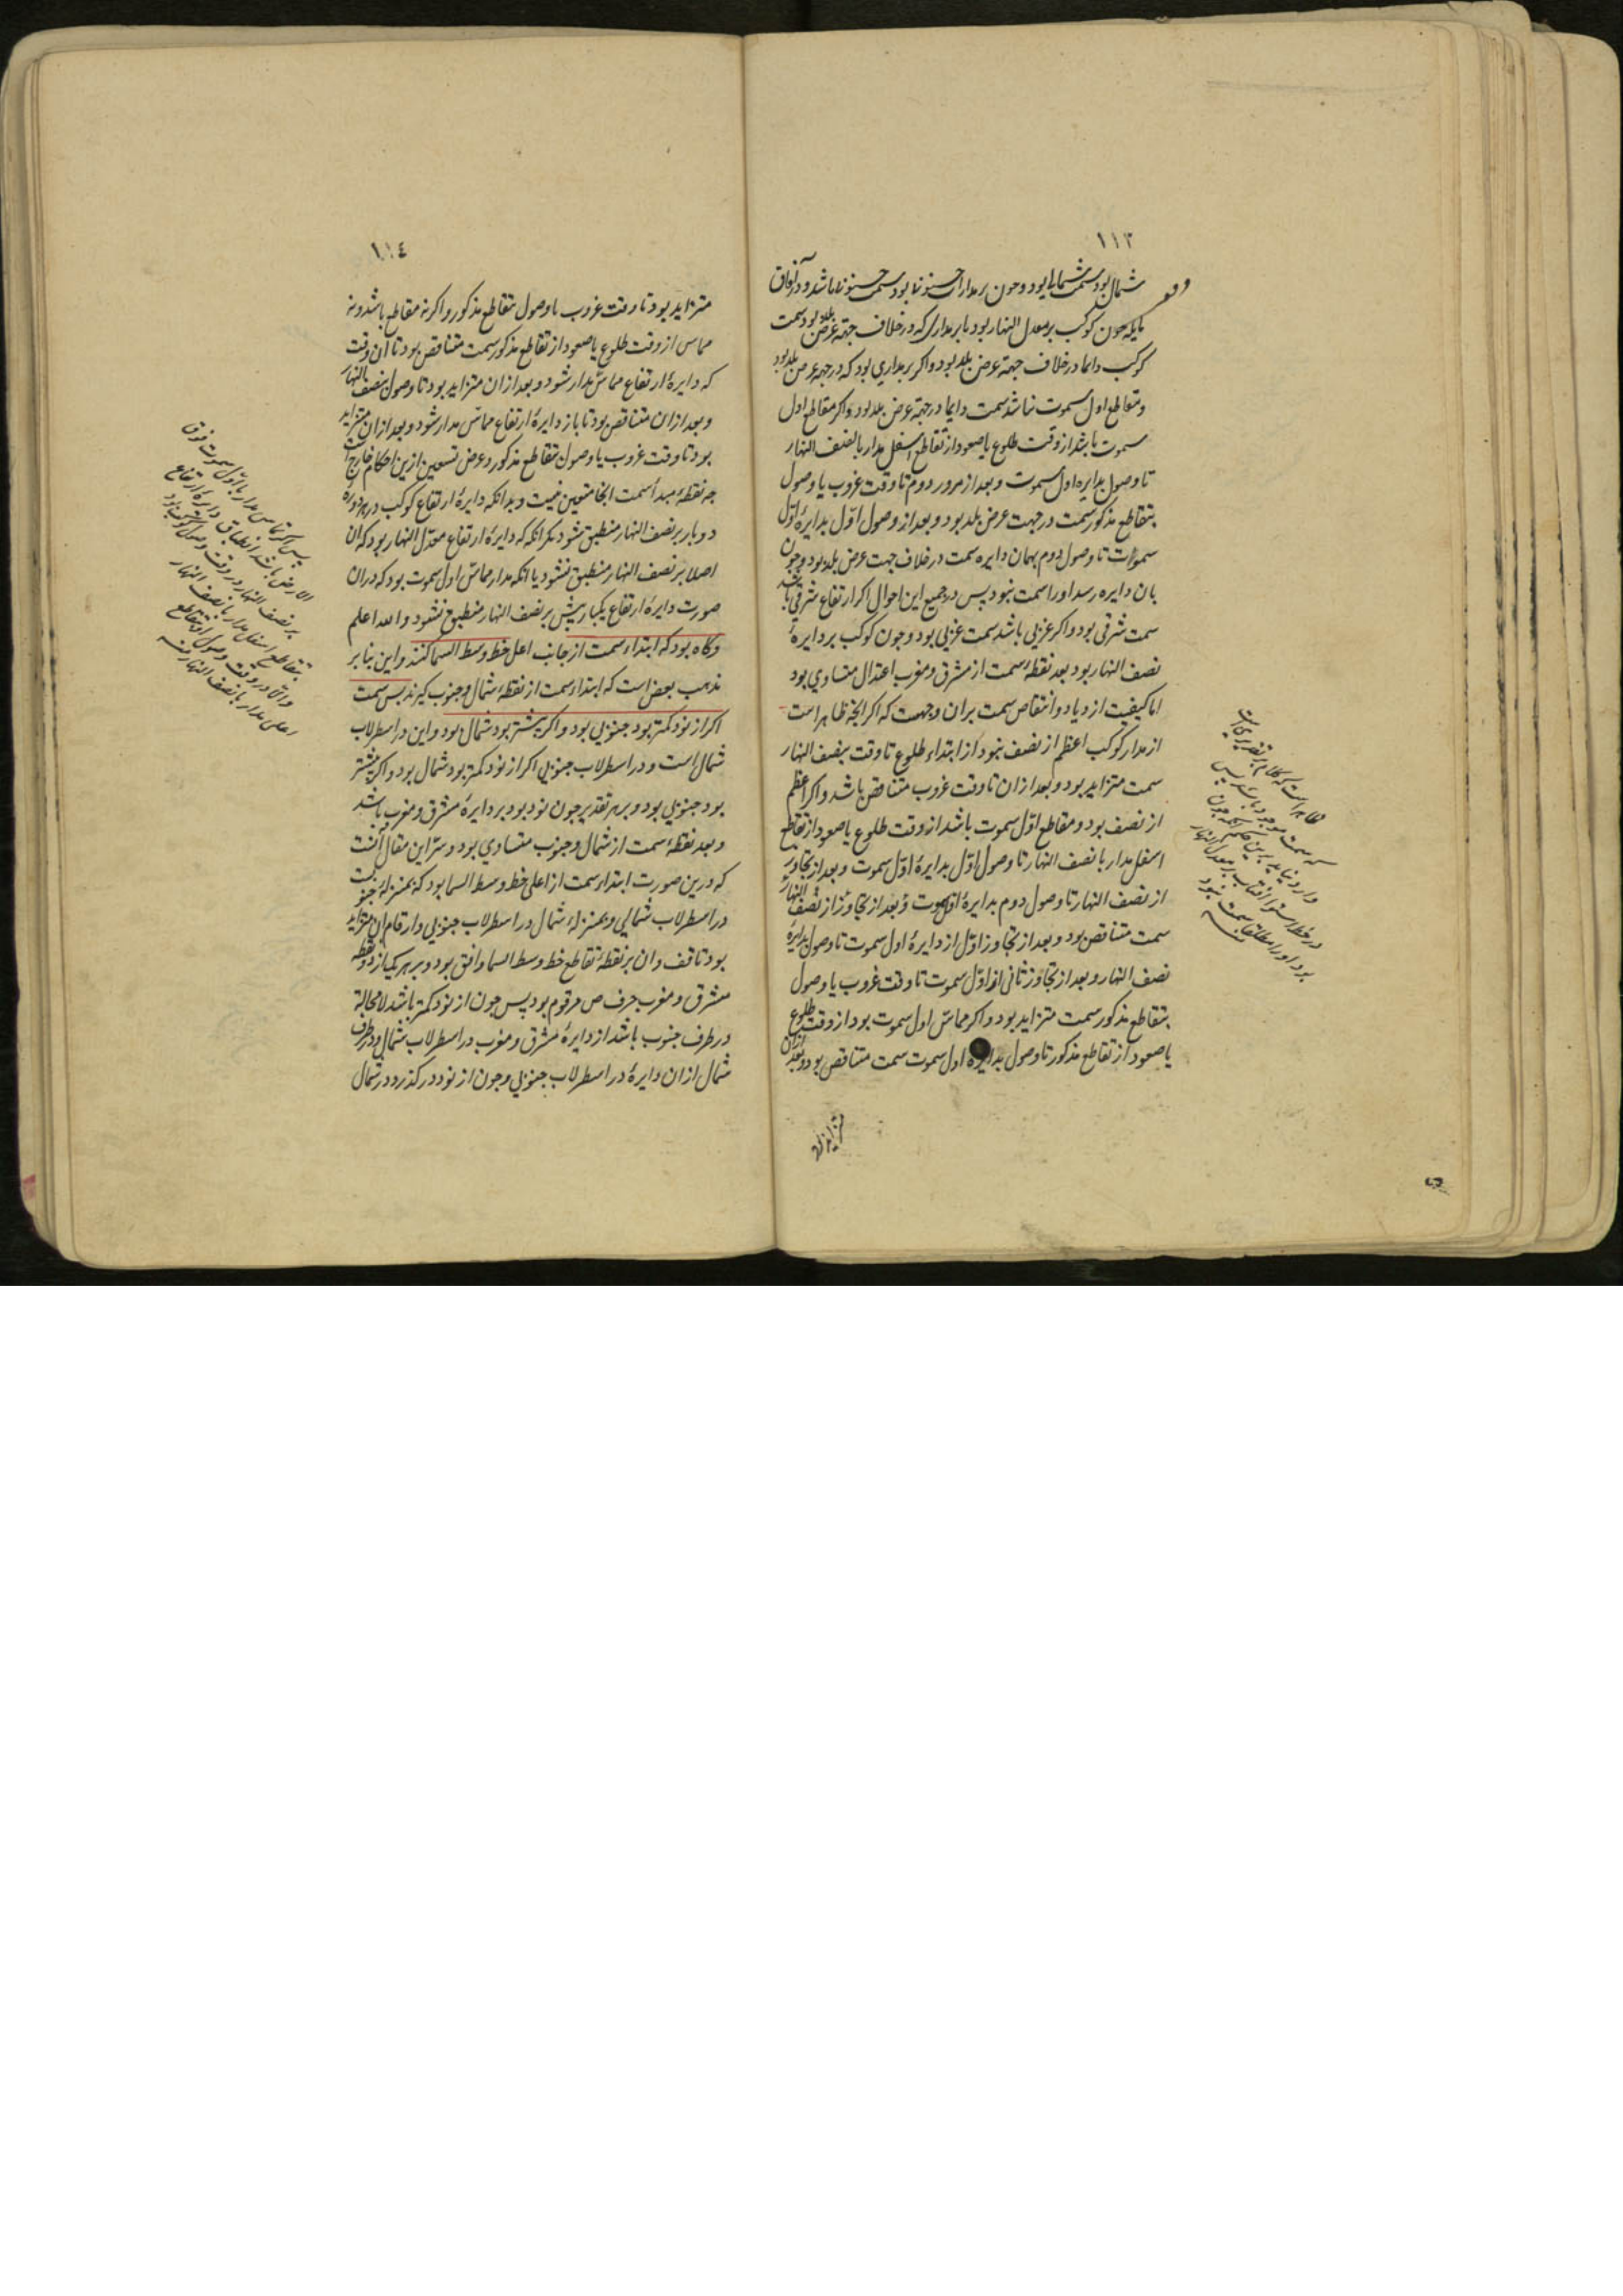 ١١٣
شمال بود سمت شمالی بود و چون بر مدارات جنوبی بود سمت جنوبی باشد و در آفاق
مایله چون کوکب بر معدل النهار بود یا بر مداری که در خلاف جهة عرض بلد بود سمت
کوکب دایما در خلاف جهة عرض بلد بود و اکر بر مداری بود که در جهة عرض بلد بود
و مقاطع اول سموت نباشد سمت دایما در جهة عرض بلد بود و اکر مقاطع اول
سموت باشد از وقت طلوع یا صعود از تقاطع اسفل مدار با نصف النهار
تا وصول بدایره اول سموت و بعد از مرور دوم تا وقت غروب یا وصول
بتقاطع مذکور سمت در جهت عرض بلد بود و بعد از وصول اوّل بدایرهٔ اوّل
سموات تا وصول دوم بهمان دایره سمت در خلاف جهت عرض بلد بود و چون
بان دایره رسد او را سمت نبود پس در جمیع این احوال اکر ارتفاع شرقی باشد
سمت شرقی بود و اکر غربی باشد سمت غربی بود و چون کوکب بر دایرهٔ
نصف النهار بود بعد نقطهٔ سمت از مشرق و مغرب اعتدال متساوی بود
اما کیفیت ازدیاد و انتقاص سمت بران وجهت که اکر انچه ظاهر است
از مدار کوکب اعظم از نصف نبود از ابتداء طلوع تا وقت بنصف النهار
سمت متزاید بود و بعد ازان تا وقت غروب متناقص باشد و اکر اعظم
از نصف بود و مقاطع اوّل سموت باشد از وقت طلوع یا صعود از تقاطع
اسفل مدار با نصف النهار تا وصول اوّل بدایرهٔ اوّل سموت و بعد از تجاوز
از نصف النهار تا وصول دوم بدایرهٔ اول سموت و بعد از تجاوز از نصف النهار
سمت متناقص بود و بعد از تجاوز اوّل از دایرهٔ اول سموت تا وصول بدایرهٔ
نصف النهار و بعد از تجاوز ثانی از اوّل سموت تا وقت غروب یا وصول
بتقاطع مذکور سمت متزاید بود و اکر مماسّ اول سموت بود از وقت طلوع
یا صعود از تقاطع مذکور تا وصول بدایرهٔ اول سموت سمت متناقص بود و بعد ازان
متزاید
ظاهر است که کلام بر تقدیری است
که سمت موجود باشد پس
وارد نیاید برین حکم آنکه چون
در خط استوا افتاب بر معدل النهار
بود او را مطلقا سمت نبود
١١٤
متزاید بود تا وقت غروب یا وصول بتقاطع مذکور و اکر نه مقاطع باشد و نه
مماس از وقت طلوع یا صعود از تقاطع مذکور سمت متناقص بود تا آن وقت
که دایرهٔ ارتفاع مماسّ مدار شود و بعد ازان متزاید بود تا وصول بنصف النهار
و بعد ازان متناقص بود تا باز دایرهٔ ارتفاع مماسّ مدار شود و بعد ازان متزاید
بود تا وقت غروب یا وصول بتقاطع مذکور و عرض تسعین ازین احکام خارج است
چه نقطهٔ مبدأ سمت انجا متعین نیست و بدانکه دایرهٔ ارتفاع کوکب در هر دورهٔ
دو بار بر نصف النهار منطبق شود مکر انکه که دایرهٔ ارتفاع معدّل النهار بود که ان
اصلا بر نصف النهار منطبق نشود یا انکه مدار مماسّ اول سموت بود که دران
صورت دایرهٔ ارتفاع یکبار بیش بر نصف النهار منطبق نشود و الله اعلم
وکاه بود که ابتداء سمت از جانب اعلی خط وسط السما کنند و این بنا بر
مذهب بعض است که ابتداء سمت از نقطهٔ شمال و جنوب کیرند پس سمت
اکر از نود کمتر بود جنوبی بود و اکر بیشتر بود شمال بود و این در اسطرلاب
شمال است و در اسطرلاب جنوبی اکر از نود کمتر بود شمال بود و اکر بیشتر
بود جنوبی بود و بر هر تقدیر چون نود بود بر دایرهٔ مشرق و مغرب باشد
و بعد نقطهٔ سمت از شمال و جنوب متساوی بود و سرّ این مقال آنست
که درین صورت ابتداء سمت از اعلی خط وسط السما بود که بمنزلهٔ جنوبست
در اسطرلاب شمالی و بمنزلهٔ شمال در اسطرلاب جنوبی و ارقام ان متزاید
بود تا قف و ان بر نقطهٔ تقاطع خط وسط السما و افق بود و بر هر یک از دو نقطه
مشرق و مغرب حرف ص مرقوم بود پس چون از نود کمتر باشد لا محالة
در طرف جنوب باشد از دایرهٔ مشرق و مغرب در اسطرلاب شمال و در طرف
شمال ازان دایرهٔ در اسطرلاب جنوبی و چون از نود در کذرد در شمال
پس اکر تماس مدار با اول سموت فوق
الارض باشد انطباق دایرهٔ ارتفاع
بر نصف النهار در وقت وصول کوکب بود
بتقاطع اسفل مدار با نصف النهار
والا در وقت وصول او بتقاطع
اعلی مدار با نصف النهار